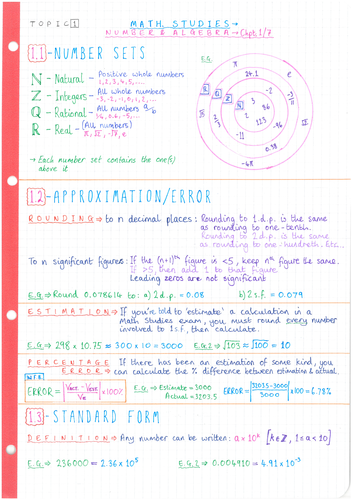 TOPIC 1
MATH STUDIES →
NUMBER & ALGEBRA → Chpt. 1/7
1.1 - NUMBER SETS
N - Natural - Positive whole numbers
1, 2, 3, 4, 5, ....
Z - Integers - All whole numbers
-3, -2, -1, 0, 1, 2, ....
Q - Rational - All numbers a/b
R - Real - (All numbers)
→ Each number set contains the one(s)
above it
E.G.
π
e
24.1
R
Q
Z
N
-11
0.38
-68
1.2 - APPROXIMATION/ERROR
ROUNDING ⇒ to n decimal places: Rounding to 1 d.p. is the same
as rounding to one-tenth.
Rounding to 2 d.p. is the same
as rounding to one-hundredth, Etc...
To n significant figures: If the (n+1)th figure is <5, keep nth figure the same.
If >5, then add 1 to that figure
Leading zeros are not significant
E.G ⇒ Round 0.078614 to: a) 2 d.p. = 0.08 b) 2 s.f. = 0.079
ESTIMATION ⇒ If you're told to 'estimate' a calculation in a
Math Studies exam, you must round every number
involved to 1 s.f., then calculate.
E.G ⇒ 298 x 10.75 ≈ 300 x 10 = 3000 E.G.2 ⇒ √103 ≈ √100 = 10
PERCENTAGE ERROR ⇒ If there has been an estimation of some kind, you
can calculate the % difference between estimation & actual.
E.G. ⇒ Estimate = 3000
Actual = 3203.5
1.3 - STANDARD FORM
DEFINITION ⇒ Any number can be written: a x 10ᵏ [k∈Z, 1≤a<10]
E.G. ⇒ 236000 = 2.36 x 10⁵ E.G.2 ⇒ 0.004910 = 4.91 x 10⁻³